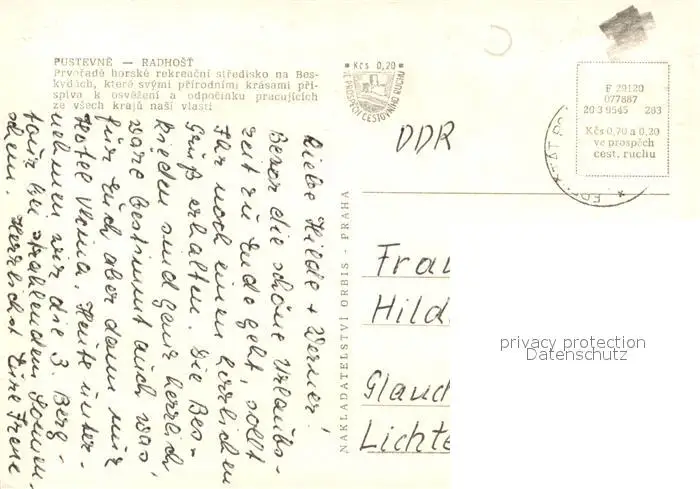 PUSTEVNĚ — RADHOŠŤ
Prvořadé horské rekreační středisko na Bes-
kydách, které svými přírodními krásami při-
spívá k osvěžení a odpočinku pracujících
ze všech krajů naší vlasti
Kčs 0,20
VE PROSPĚCH CESTOVNÍHO RUCHU
F 29120
077887
20 3 9545 283
Kčs 0,70 a 0,20
ve prospěch
cest. ruchu
DDR
Liebe Hilde + Werner!
Bevor die schöne Urlaubs-
zeit zu Ende geht, sollt
Ihr noch einen herrlichen
Gruß erhalten. Die Bes-
kieden sind ganz herrlich
wäre bestimmt auch was
für Euch aber dann nur
Hotel Vlčina. Heute unter-
nehmen wir die 3. Berg-
tour bei strahlendem Sonnen-
schein. Herzlichst Eure Irene
NAKLADATELSTVÍ ORBIS - PRAHA
Frau
Hild
Glauch
Lichte
privacy protection
Datenschutz